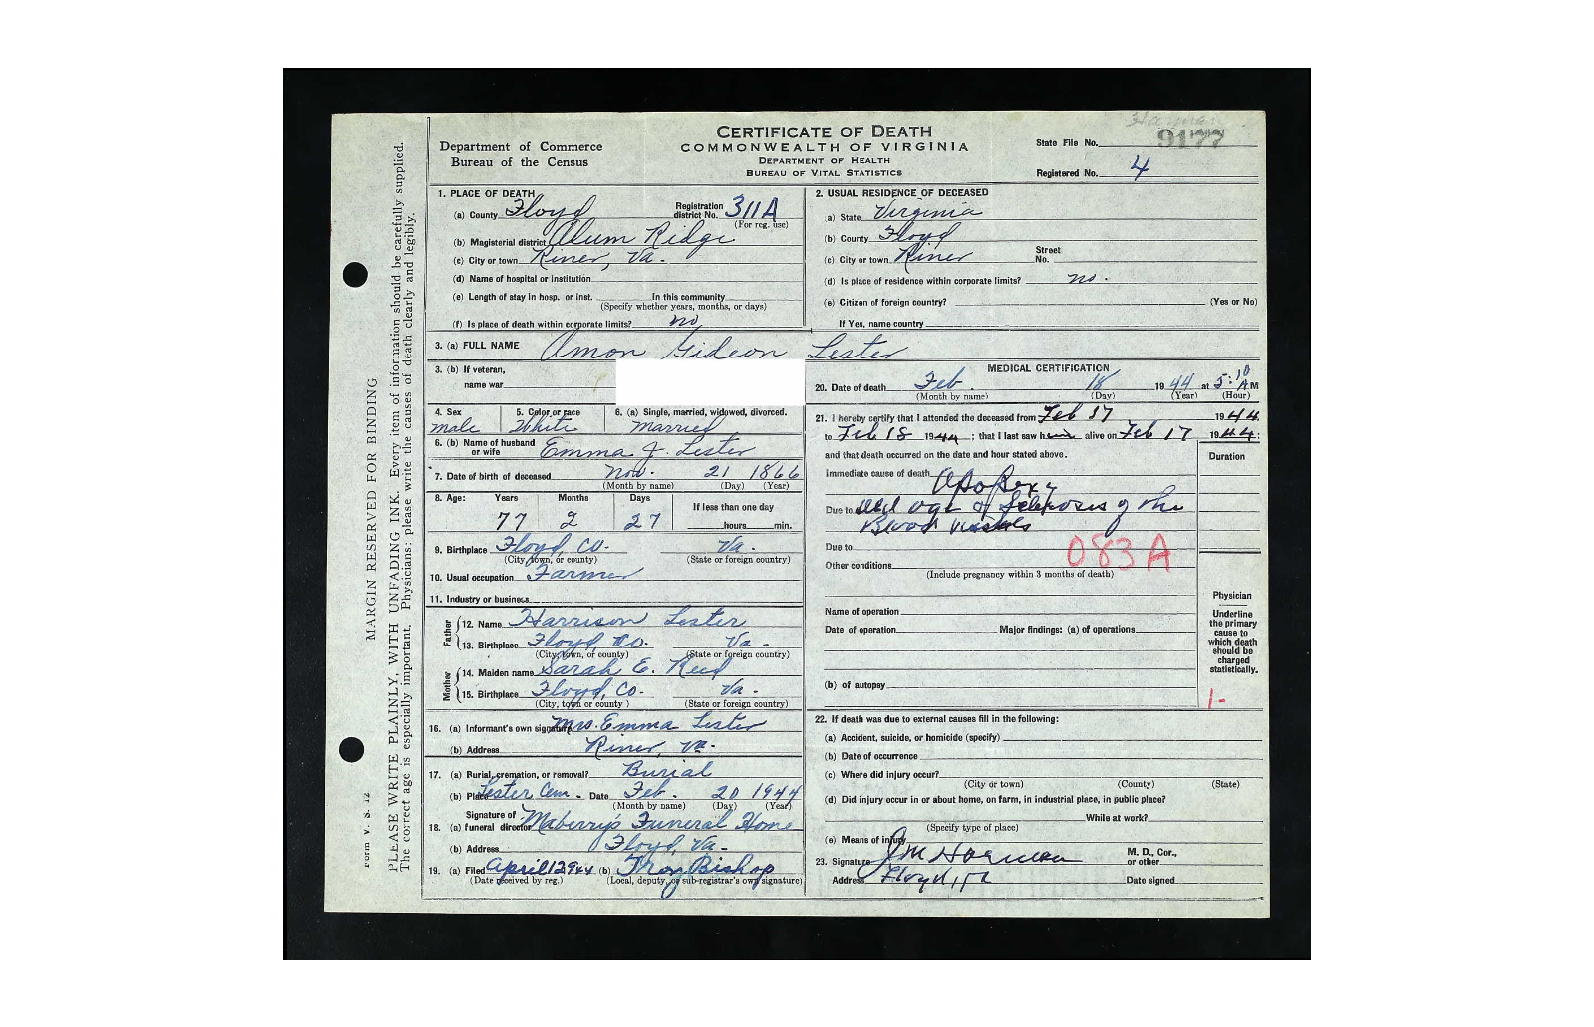 CERTIFICATE OF DEATH
COMMONWEALTH OF VIRGINIA
DEPARTMENT OF HEALTH
BUREAU OF VITAL STATISTICS
Department of Commerce
Bureau of the Census
State File No. 9177
Registered No. 4
MARGIN RESERVED FOR BINDING
PLEASE WRITE PLAINLY, WITH UNFADING INK. Every item of information should be carefully supplied.
The correct age is especially important. Physicians: please write the causes of death clearly and legibly.
Form V. S. 12
1. PLACE OF DEATH
(a) County Floyd Registration district No. 311A
(For reg. use)
(b) Magisterial district Alum Ridge
(c) City or town Riner, Va.
(d) Name of hospital or institution
(e) Length of stay in hosp. or inst. In this community
(Specify whether years, months, or days)
(f) Is place of death within corporate limits? no
2. USUAL RESIDENCE OF DECEASED
(a) State Virginia
(b) County Floyd
(c) City or town Riner Street No.
(d) Is place of residence within corporate limits? no.
(e) Citizen of foreign country? (Yes or No)
If Yes, name country
3. (a) FULL NAME Amon Gideon Lester
3. (b) If veteran,
name war
4. Sex male 5. Color or race White 6. (a) Single, married, widowed, divorced. Married
6. (b) Name of husband or wife Emma J. Lester
7. Date of birth of deceased Nov. 21 1866
(Month by name) (Day) (Year)
8. Age: Years Months Days If less than one day
77 2 27 hours min.
9. Birthplace Floyd, Co. Va.
(City, town, or county) (State or foreign country)
10. Usual occupation Farmer
11. Industry or business
Father
12. Name Harrison Lester
13. Birthplace Floyd Co. Va.
(City, town, or county) (State or foreign country)
Mother
14. Maiden name Sarah E. Reed
15. Birthplace Floyd, Co. Va.
(City, town or county) (State or foreign country)
16. (a) Informant's own signature Mrs. Emma Lester
(b) Address Riner, Va.
17. (a) Burial, cremation, or removal? Burial
(b) Place Lester Cem. Date Feb. 20 1944
(Month by name) (Day) (Year)
Signature of
18. (a) funeral director Maberry's Funeral Home
(b) Address Floyd, Va.
19. (a) Filed April 1 2 944 (b) Troy Bishop
(Date received by reg.) (Local, deputy, or sub-registrar's own signature)
MEDICAL CERTIFICATION
20. Date of death Feb. 18 1944 at 5:10 AM
(Month by name) (Day) (Year) (Hour)
21. I hereby certify that I attended the deceased from Feb 17 1944
to Feb 18 1944; that I last saw him alive on Feb 17 1944;
and that death occurred on the date and hour stated above. Duration
Immediate cause of death Apoplexy
Due to Old age & Sclerosis of the
Blood Vessels
Due to
083A
Other conditions
(Include pregnancy within 3 months of death)
Name of operation
Date of operation Major findings: (a) of operations
(b) of autopsy
Physician
Underline
the primary
cause to
which death
should be
charged
statistically.
1-
22. If death was due to external causes fill in the following:
(a) Accident, suicide, or homicide (specify)
(b) Date of occurrence
(c) Where did injury occur?
(City or town) (County) (State)
(d) Did injury occur in or about home, on farm, in industrial place, in public place?
While at work?
(Specify type of place)
(e) Means of injury
23. Signature J M Harman M. D., Cor., or other
Address Floyd Va Date signed